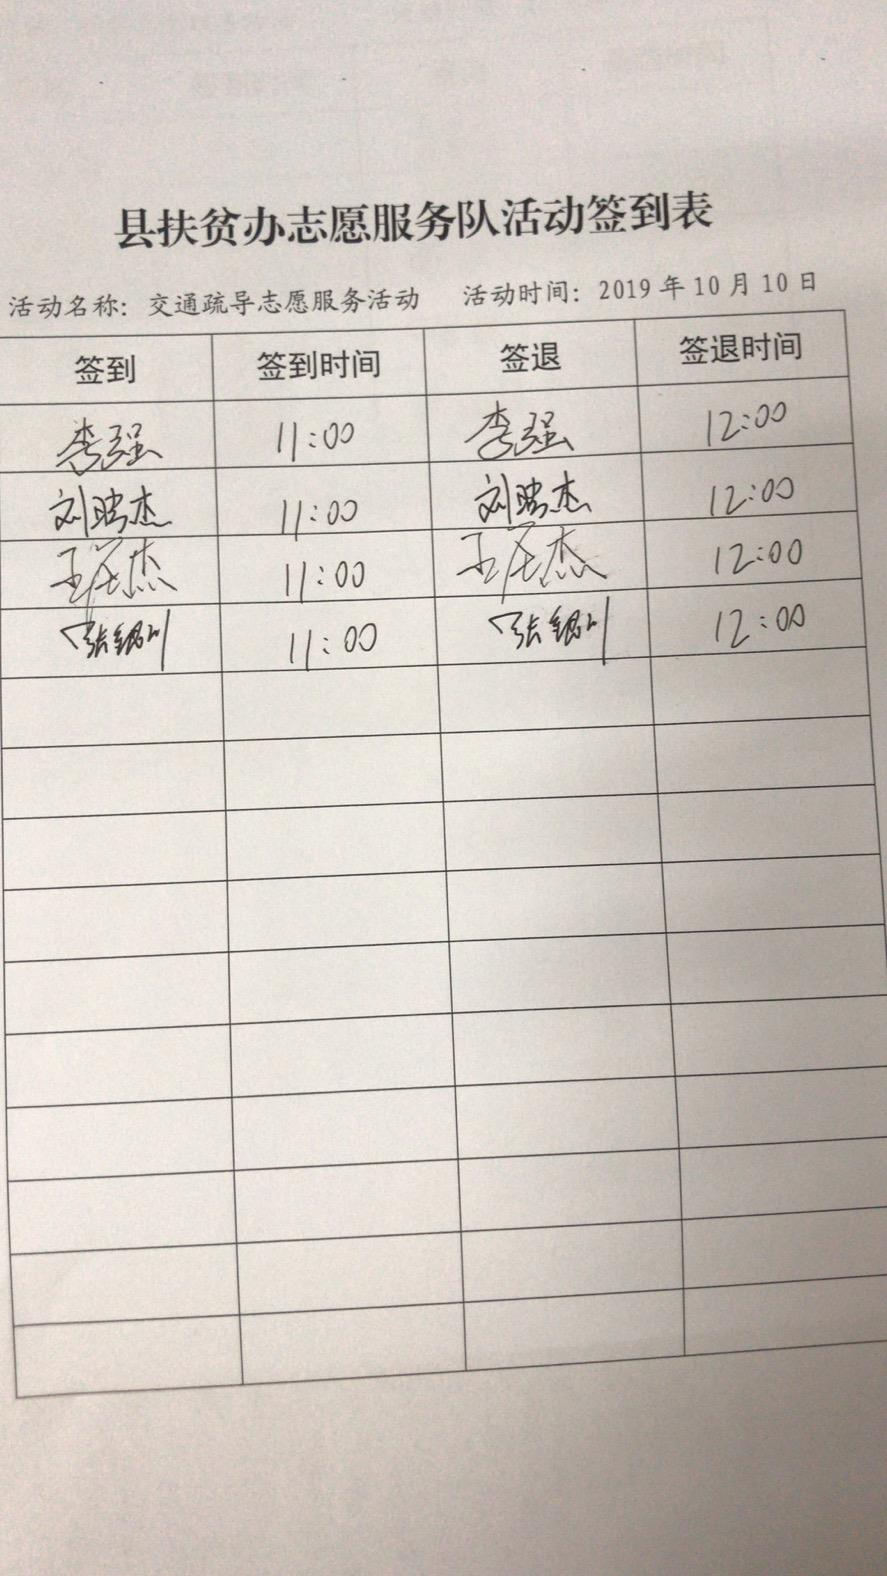 县扶贫办志愿服务队活动签到表
活动名称：交通疏导志愿服务活动 活动时间：2019年10月10日
签到 签到时间 签退 签退时间
李强 11:00 李强 12:00
刘晓杰 11:00 刘晓杰 12:00
11:00 12:00
11:00 12:00